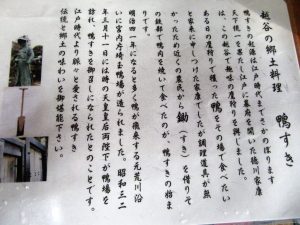 越谷の郷土料理　鴨すき
鴨すきの発祥は江戸時代までさかのぼります
天下統一を果たし江戸に幕府を開いた徳川家康
はこの越谷で趣味の鷹狩りを興じました。
あるとの鷹狩りで獲った鴨をその場で食べたい
と家来に申しつけた家康でしたが調理道具が無
かったため近くの農民から鋤（すき）を借りそ
の鉄部で鴨肉を焼いて食べたのが、鴨すきの始ま
りです。
明治四一年になると多くの鴨が飛来する元荒川沿
いに宮内庁埼玉鴨場が造られました。昭和三二
年三月十一日には時の天皇皇后両陛下が鴨場を
訪れ、鴨すきを御召しになられたとのことです。
江戸時代より脈々と愛される鴨すき
伝統と郷土の味わいを御堪能下さい。